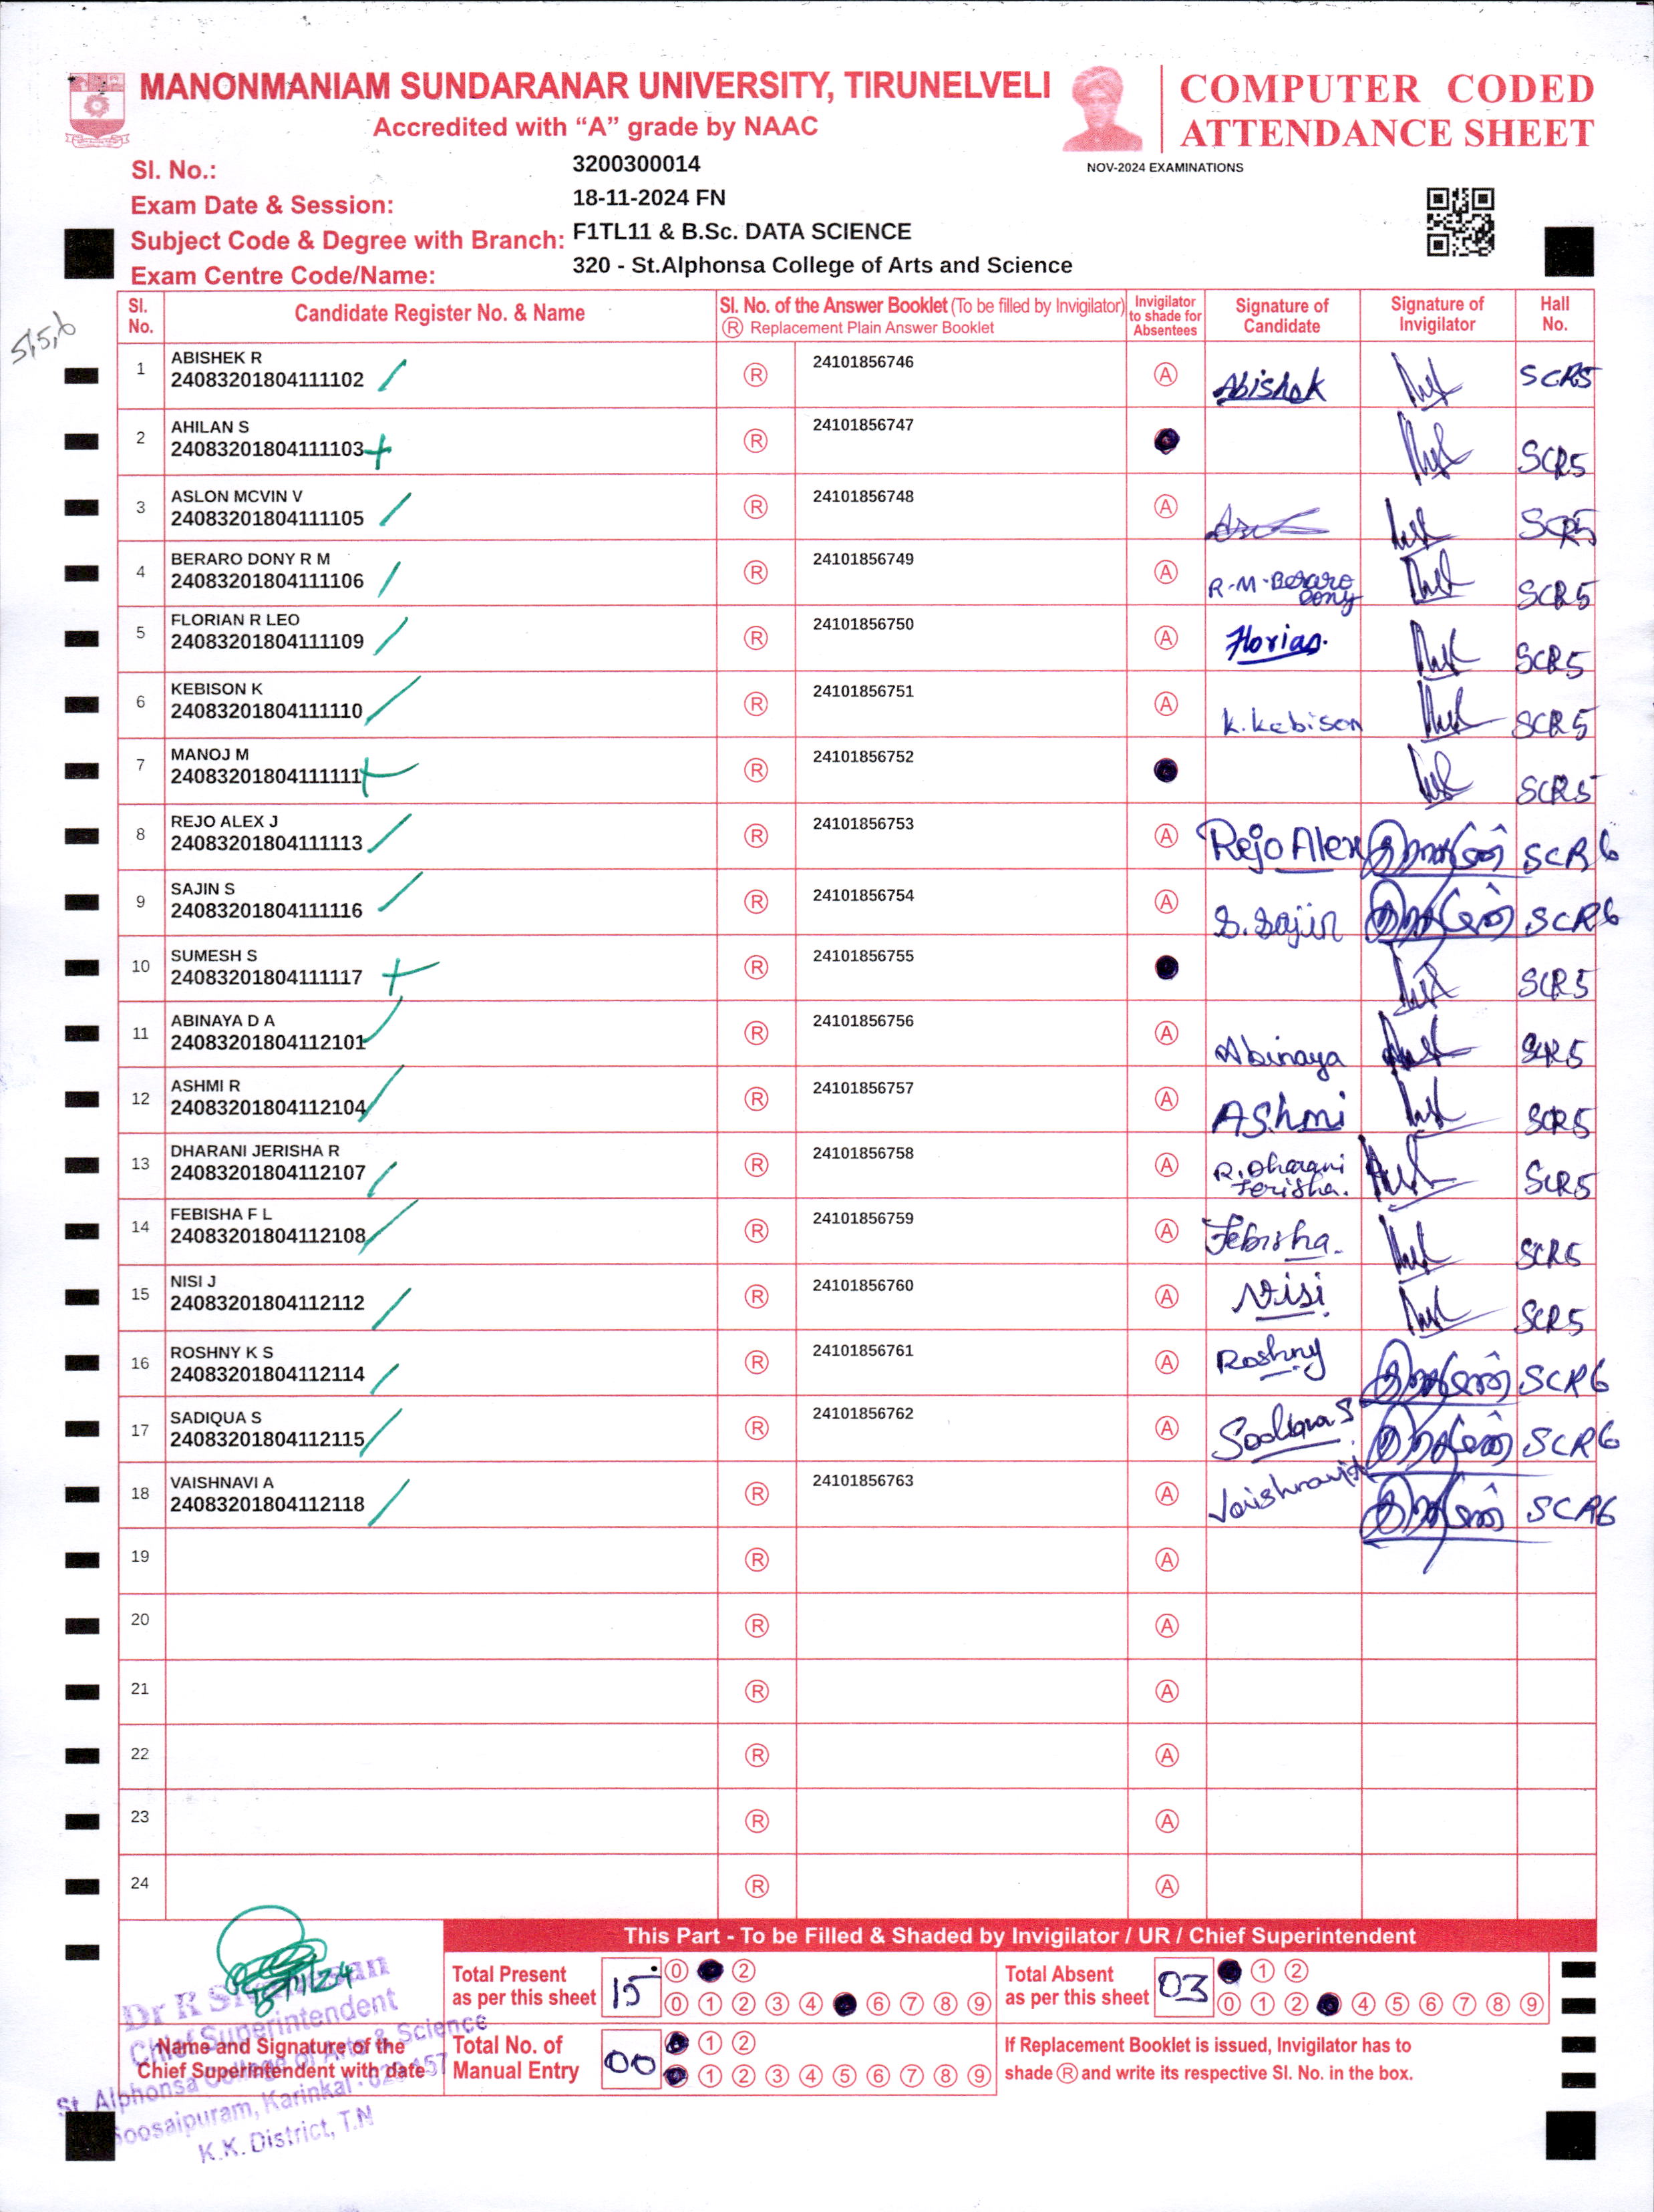 MANONMANIAM SUNDARANAR UNIVERSITY, TIRUNELVELI
Accredited with “A” grade by NAAC
COMPUTER CODED
ATTENDANCE SHEET
NOV-2024 EXAMINATIONS
Sl. No.: 3200300014
Exam Date & Session: 18-11-2024 FN
Subject Code & Degree with Branch: F1TL11 & B.Sc. DATA SCIENCE
Exam Centre Code/Name: 320 - St.Alphonsa College of Arts and Science
Sl. No. Candidate Register No. & Name Sl. No. of the Answer Booklet (To be filled by Invigilator) Ⓡ Replacement Plain Answer Booklet Invigilator to shade for Absentees Signature of Candidate Signature of Invigilator Hall No.
1 ABISHEK R 24083201804111102 Ⓡ 24101856746 Ⓐ Abishek SCR5
2 AHILAN S 24083201804111103 Ⓡ 24101856747 SCR5
3 ASLON MCVIN V 24083201804111105 Ⓡ 24101856748 Ⓐ SCR5
4 BERARO DONY R M 24083201804111106 Ⓡ 24101856749 Ⓐ R.M.Beraro Dony SCR5
5 FLORIAN R LEO 24083201804111109 Ⓡ 24101856750 Ⓐ Florian. SCR5
6 KEBISON K 24083201804111110 Ⓡ 24101856751 Ⓐ K.Kebison SCR5
7 MANOJ M 24083201804111111 Ⓡ 24101856752 SCR5
8 REJO ALEX J 24083201804111113 Ⓡ 24101856753 Ⓐ Rejo Alex SCR6
9 SAJIN S 24083201804111116 Ⓡ 24101856754 Ⓐ S.Sajin SCR6
10 SUMESH S 24083201804111117 Ⓡ 24101856755 SCR5
11 ABINAYA D A 24083201804112101 Ⓡ 24101856756 Ⓐ Abinaya SCR5
12 ASHMI R 24083201804112104 Ⓡ 24101856757 Ⓐ AShmi SCR5
13 DHARANI JERISHA R 24083201804112107 Ⓡ 24101856758 Ⓐ R.Dharani Jerisha. SCR5
14 FEBISHA F L 24083201804112108 Ⓡ 24101856759 Ⓐ Febisha. SCR5
15 NISI J 24083201804112112 Ⓡ 24101856760 Ⓐ Nisi SCR5
16 ROSHNY K S 24083201804112114 Ⓡ 24101856761 Ⓐ Roshny SCR6
17 SADIQUA S 24083201804112115 Ⓡ 24101856762 Ⓐ SCR6
18 VAISHNAVI A 24083201804112118 Ⓡ 24101856763 Ⓐ Vaishnavi A SCR6
19 Ⓡ Ⓐ
20 Ⓡ Ⓐ
21 Ⓡ Ⓐ
22 Ⓡ Ⓐ
23 Ⓡ Ⓐ
24 Ⓡ Ⓐ
This Part - To be Filled & Shaded by Invigilator / UR / Chief Superintendent
Total Present as per this sheet 15 0 2
0 1 2 3 4 6 7 8 9
Total Absent as per this sheet 03 1 2
0 1 2 4 5 6 7 8 9
Total No. of Manual Entry 00 1 2
1 2 3 4 5 6 7 8 9
If Replacement Booklet is issued, Invigilator has to
shade Ⓡ and write its respective Sl. No. in the box.
Name and Signature of the
Chief Superintendent with date
Chief Superintendent
St. Alphonsa College of Arts & Science
Soosaipuram, Karinkal
K.K. District, T.N